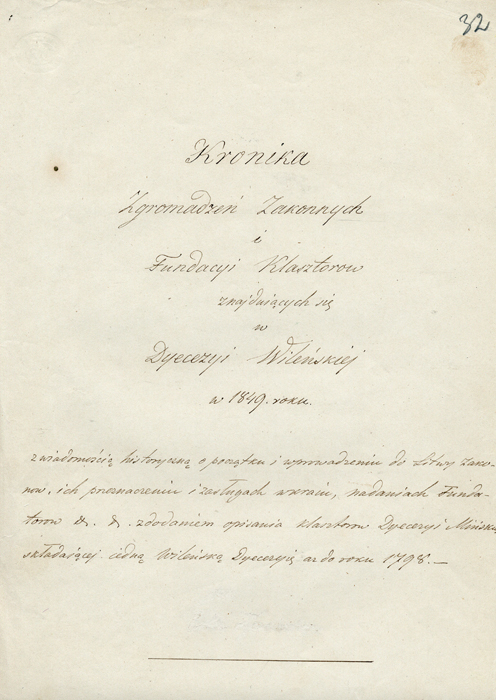 32
Kronika
Zgromadzeń Zakonnych
i
Fundacyi Klasztorow
znajduiących się
w
Dyecezyi Wileńskiej
w 1849. roku.
z wiadomością historyczną o początku i wprowadzeniu do Litwy zako-
now, ich przeznaczeniu i zasługach w kraiu, nadaniach Funda-
torow &. &. z dodaniem opisania klasztorow Dyecezyi Mińskiej
składaiącej iedną Wileńską Dyecezyią aż do roku 1798. —